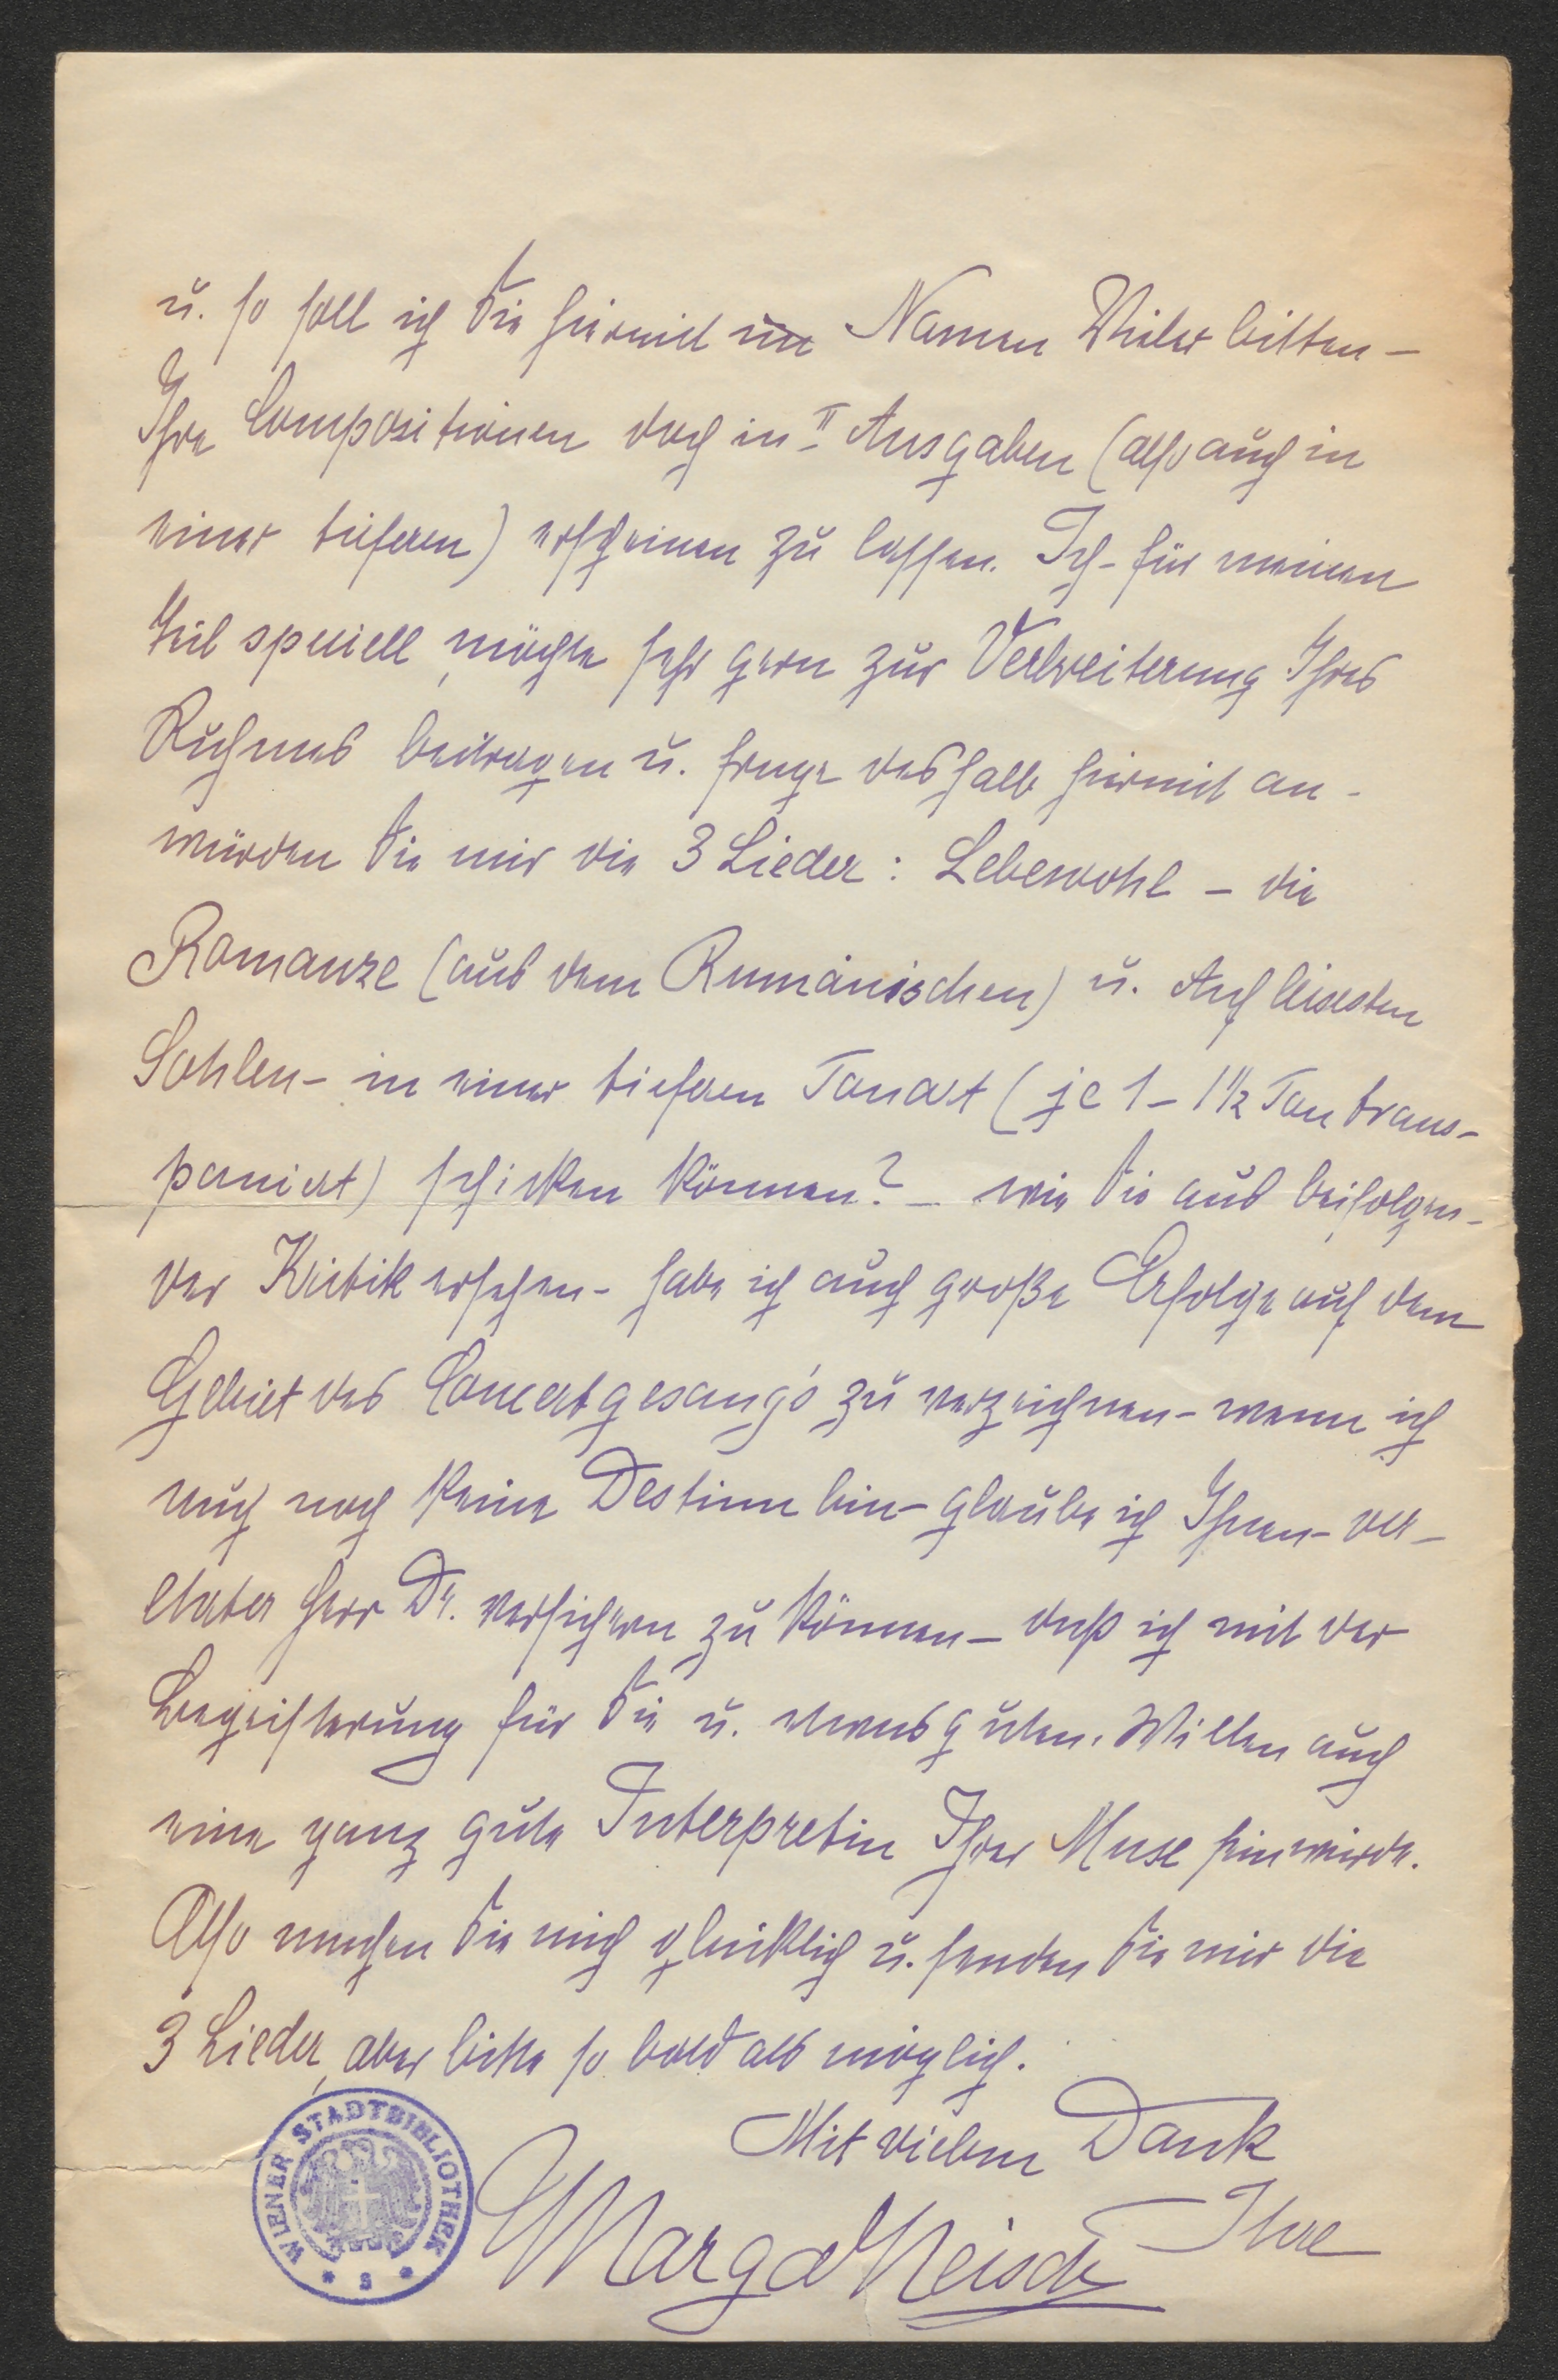 u. so soll ich Sie hiermit im Namen Vieler bitten –
Ihre Compositionen doch in II Ausgaben (also auch in
einer tieferen) erscheinen zu lassen. Ich – für meinen
Teil speciell, möchte sehr gern zur Verbreiterung Ihres
Ruhmes beitragen u. frage deshalb hiermit an –
würden Sie mir die 3 Lieder: Lebewohl – die
Romanze (aus dem Rumänischen) u. Auf leisesten
Sohlen – in einer tieferen Tonart (je 1 – 1 1/2 Ton trans-
poniert) schicken können? – wie Sie aus beifolgen-
der Kritik ersehen – habe ich auch große Erfolge auf dem
Gebiet des Concertgesang's zu verzeichnen – wenn ich
auch noch keine Destinn bin – glaube ich Ihnen – ver-
ehrter Herr Dr. versichern zu können – daß ich mit der
Begeisterung für Sie u. etwas guten Willen auch
eine ganz gute Interpretin Ihrer Muse sein würde.
Also machen Sie mich glücklich u. senden Sie mir die
3 Lieder, aber bitte so bald als möglich.
Mit vielem Dank
Ihre
Marga Neisch
WIENER STADTBIBLIOTHEK
* S *